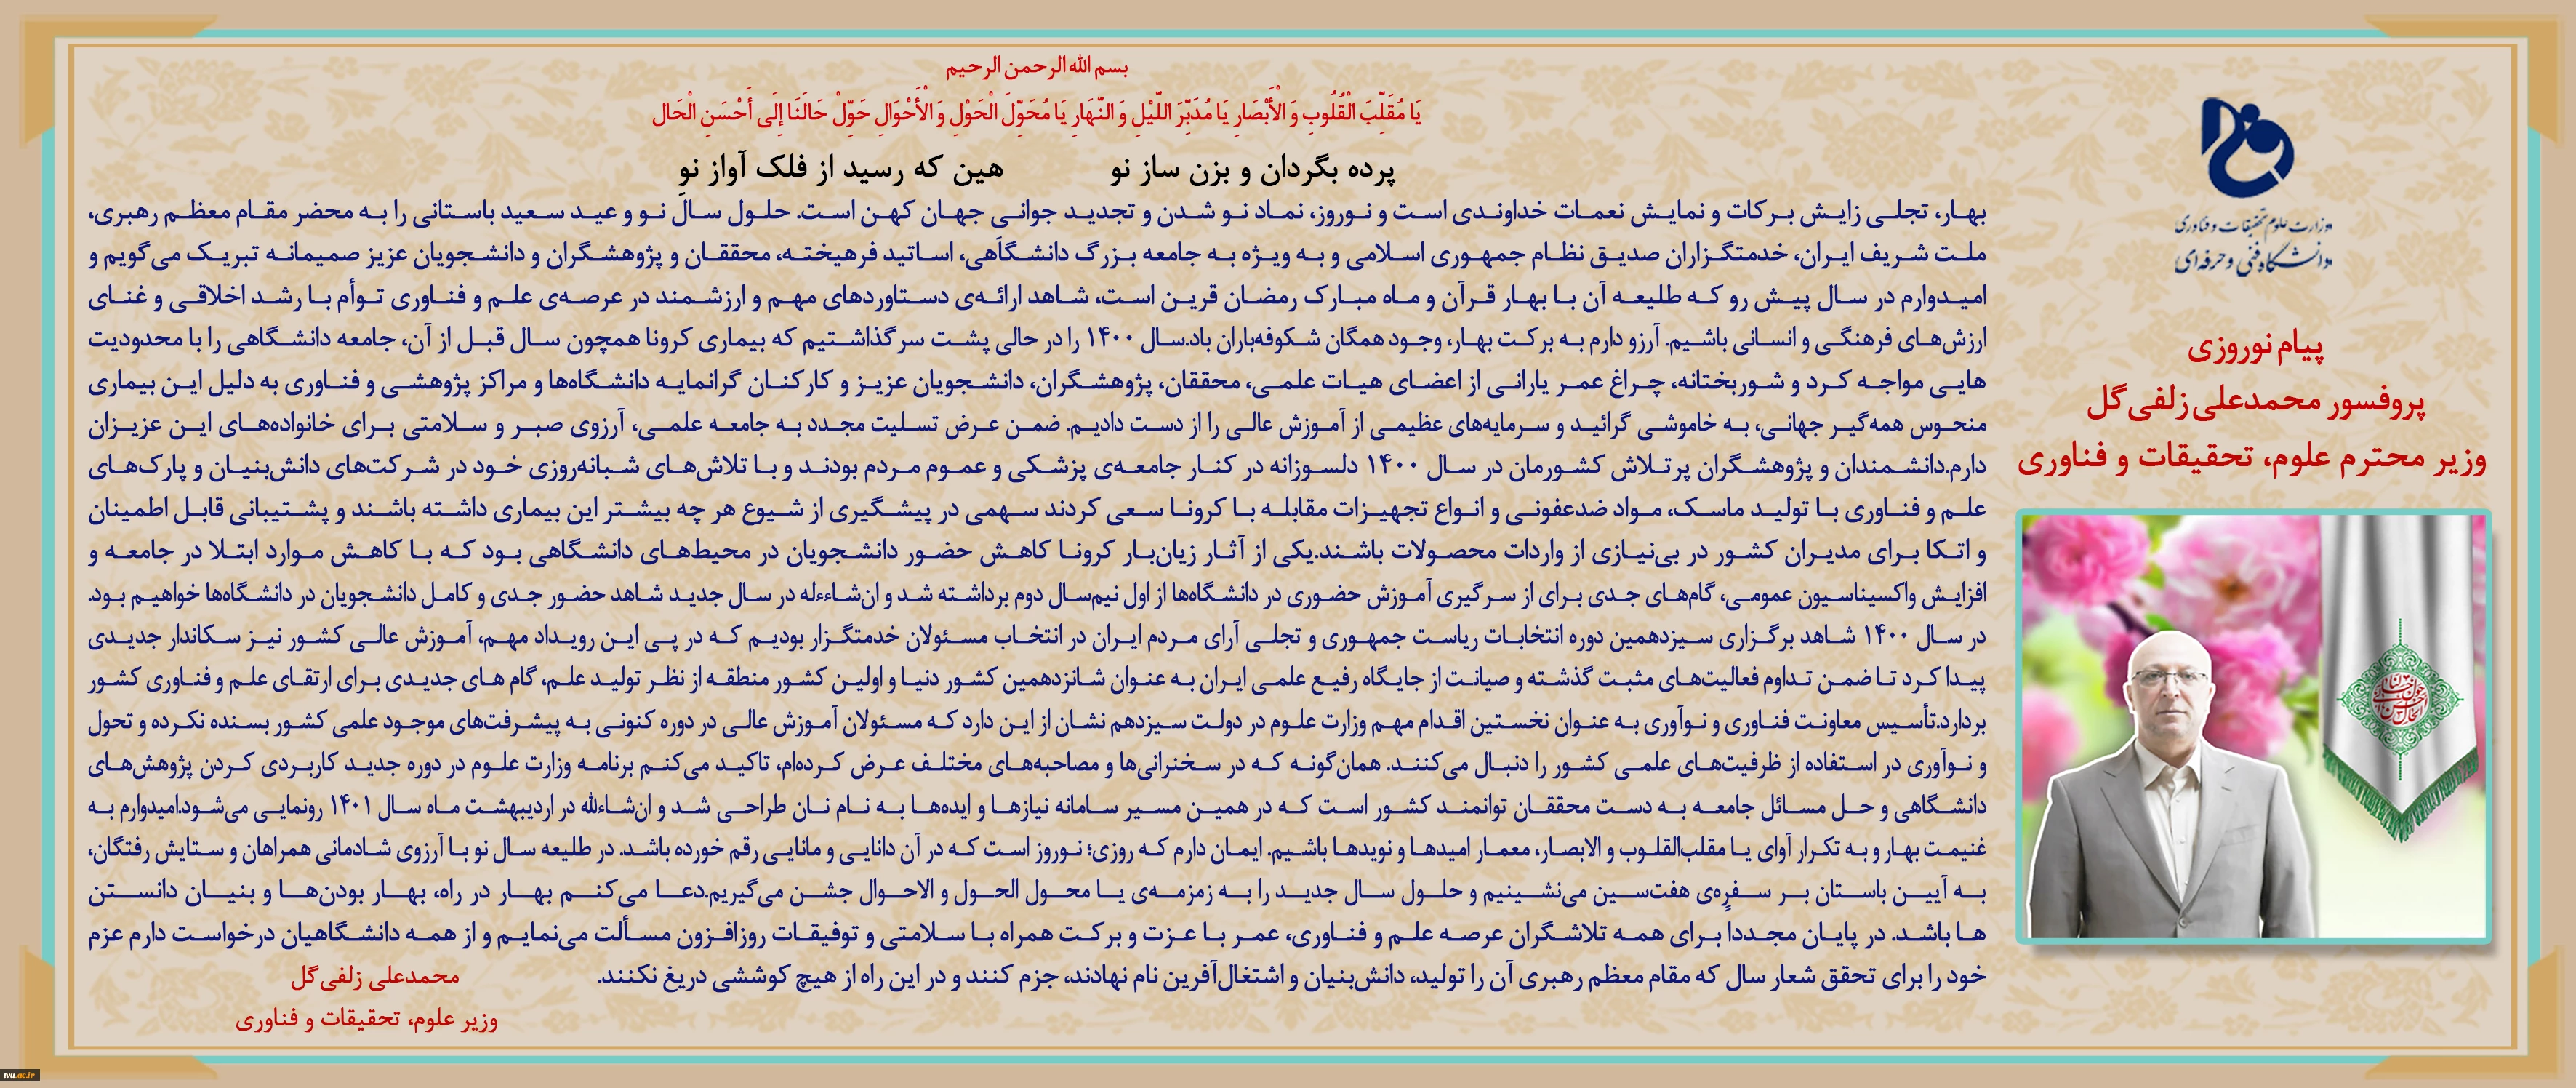 بسم الله الرحمن الرحیم
یَا مُقَلِّبَ الْقُلُوبِ وَ الْأَبْصَارِ یَا مُدَبِّرَ اللَّیْلِ وَ النَّهَارِ یَا مُحَوِّلَ الْحَوْلِ وَ الْأَحْوَالِ حَوِّلْ حَالَنَا إِلَى أَحْسَنِ الْحَال
پرده بگردان و بزن ساز نو هین که رسید از فلک آواز نو
بهار، تجلی زایش برکات و نمایش نعمات خداوندی است و نوروز، نماد نو شدن و تجدید جوانی جهان کهن است. حلول سال نو و عید سعید باستانی را به محضر مقام معظم رهبری،
ملت شریف ایران، خدمتگزاران صدیق نظام جمهوری اسلامی و به ویژه به جامعه بزرگ دانشگاهی، اساتید فرهیخته، محققان و پژوهشگران و دانشجویان عزیز صمیمانه تبریک می‌گویم و
امیدوارم در سال پیش رو که طلیعه آن با بهار قرآن و ماه مبارک رمضان قرین است، شاهد ارائه‌ی دستاوردهای مهم و ارزشمند در عرصه‌ی علم و فناوری توأم با رشد اخلاقی و غنای
ارزش‌های فرهنگی و انسانی باشیم. آرزو دارم به برکت بهار، وجود همگان شکوفه‌باران باد.سال ۱۴۰۰ را در حالی پشت سر گذاشتیم که بیماری کرونا همچون سال قبل از آن، جامعه دانشگاهی را با محدودیت
هایی مواجه کرد و شوربختانه، چراغ عمر یارانی از اعضای هیات علمی، محققان، پژوهشگران، دانشجویان عزیز و کارکنان گرانمایه دانشگاه‌ها و مراکز پژوهشی و فناوری به دلیل این بیماری
منحوس همه‌گیر جهانی، به خاموشی گرائید و سرمایه‌های عظیمی از آموزش عالی را از دست دادیم. ضمن عرض تسلیت مجدد به جامعه علمی، آرزوی صبر و سلامتی برای خانواده‌های این عزیزان
دارم.دانشمندان و پژوهشگران پرتلاش کشورمان در سال ۱۴۰۰ دلسوزانه در کنار جامعه‌ی پزشکی و عموم مردم بودند و با تلاش‌های شبانه‌روزی خود در شرکت‌های دانش‌بنیان و پارک‌های
علم و فناوری با تولید ماسک، مواد ضدعفونی و انواع تجهیزات مقابله با کرونا سعی کردند سهمی در پیشگیری از شیوع هر چه بیشتر این بیماری داشته باشند و پشتیبانی قابل اطمینان
و اتکا برای مدیران کشور در بی‌نیازی از واردات محصولات باشند.یکی از آثار زیان‌بار کرونا کاهش حضور دانشجویان در محیط‌های دانشگاهی بود که با کاهش موارد ابتلا در جامعه و
افزایش واکسیناسیون عمومی، گام‌های جدی برای از سرگیری آموزش حضوری در دانشگاه‌ها از اول نیم‌سال دوم برداشته شد و ان‌شاءءله در سال جدید شاهد حضور جدی و کامل دانشجویان در دانشگاه‌ها خواهیم بود.
در سال ۱۴۰۰ شاهد برگزاری سیزدهمین دوره انتخابات ریاست جمهوری و تجلی آرای مردم ایران در انتخاب مسئولان خدمتگزار بودیم که در پی این رویداد مهم، آموزش عالی کشور نیز سکاندار جدیدی
پیدا کرد تا ضمن تداوم فعالیت‌های مثبت گذشته و صیانت از جایگاه رفیع علمی ایران به عنوان شانزدهمین کشور دنیا و اولین کشور منطقه از نظر تولید علم، گام های جدیدی برای ارتقای علم و فناوری کشور
بردارد.تأسیس معاونت فناوری و نوآوری به عنوان نخستین اقدام مهم وزارت علوم در دولت سیزدهم نشان از این دارد که مسئولان آموزش عالی در دوره کنونی به پیشرفت‌های موجود علمی کشور بسنده نکرده و تحول
و نوآوری در استفاده از ظرفیت‌های علمی کشور را دنبال می‌کنند. همان‌گونه که در سخنرانی‌ها و مصاحبه‌های مختلف عرض کرده‌ام، تاکید می‌کنم برنامه وزارت علوم در دوره جدید کاربردی کردن پژوهش‌های
دانشگاهی و حل مسائل جامعه به دست محققان توانمند کشور است که در همین مسیر سامانه نیازها و ایده‌ها به نام نان طراحی شد و ان‌شاءلله در اردیبهشت ماه سال ۱۴۰۱ رونمایی می‌شود.امیدوارم به
غنیمت بهار و به تکرار آوای یا مقلب‌القلوب و الابصار، معمار امیدها و نویدها باشیم. ایمان دارم که روزی؛ نوروز است که در آن دانایی و مانایی رقم خورده باشد. در طلیعه سال نو با آرزوی شادمانی همراهان و ستایش رفتگان،
به آیین باستان بر سفره‌ی هفت‌سین می‌نشینیم و حلول سال جدید را به زمزمه‌ی یا محول الحول و الاحوال جشن می‌گیریم.دعا می‌کنم بهار در راه، بهار بودن‌ها و بنیان دانستن
ها باشد. در پایان مجدداً برای همه تلاشگران عرصه علم و فناوری، عمر با عزت و برکت همراه با سلامتی و توفیقات روزافزون مسألت می‌نمایم و از همه دانشگاهیان درخواست دارم عزم
خود را برای تحقق شعار سال که مقام معظم رهبری آن را تولید، دانش‌بنیان و اشتغال‌آفرین نام نهادند، جزم کنند و در این راه از هیچ کوششی دریغ نکنند.
محمدعلی زلفی‌گل
وزیر علوم، تحقیقات و فناوری
وزارت علوم تحقیقات و فناوری
دانشگاه فنی و حرفه‌ای
پیام نوروزی
پروفسور محمدعلی زلفی‌گل
وزیر محترم علوم، تحقیقات و فناوری
tvu.ac.ir